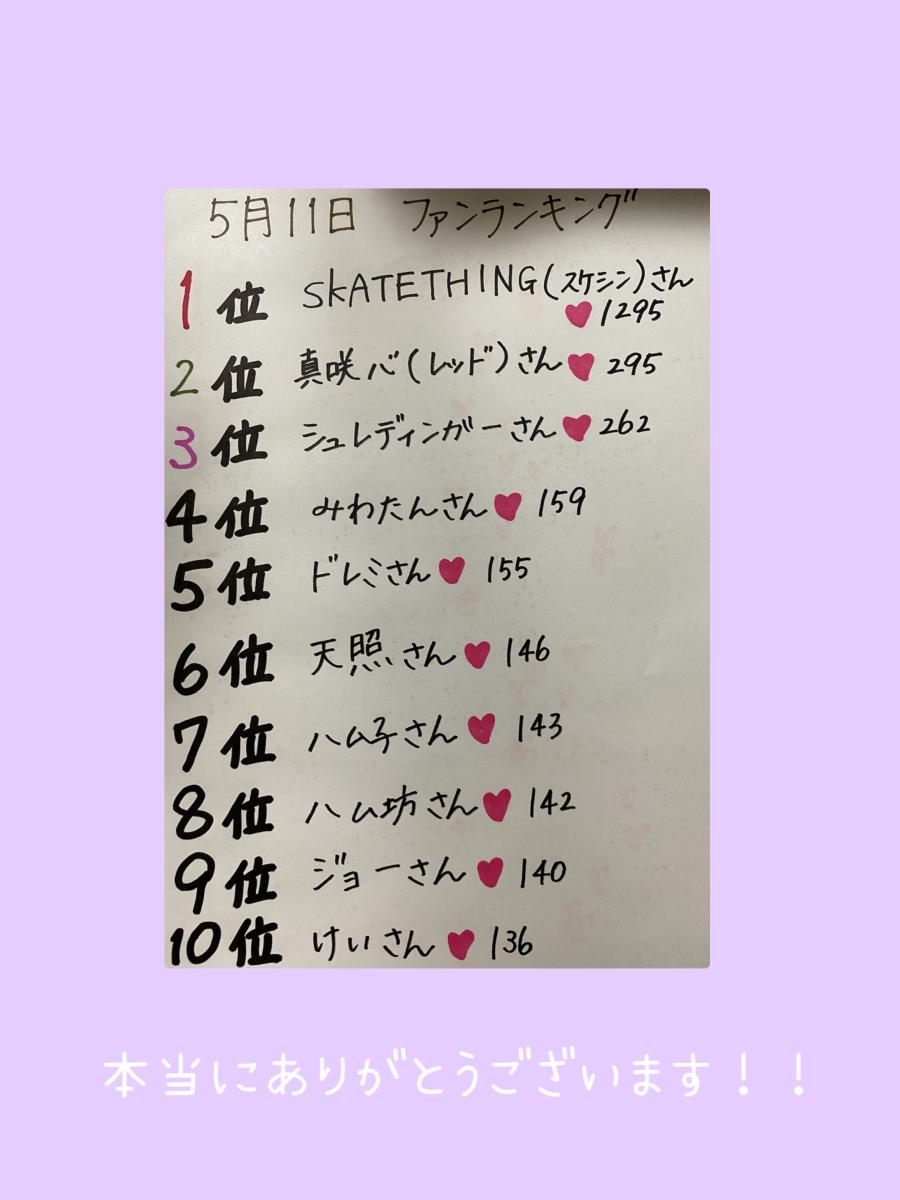 5月11日 ファンランキング
1位 SKATETHING(スケシン)さん
♥1295
2位 真咲心(レッド)さん♥295
3位 シュレディンガーさん♥262
4位 みわたんさん♥159
5位 ドレミさん♥155
6位 天照さん♥146
7位 ハム子さん♥143
8位 ハム坊さん♥142
9位 ジョーさん♥140
10位 けいさん♥136
本当にありがとうございます！！